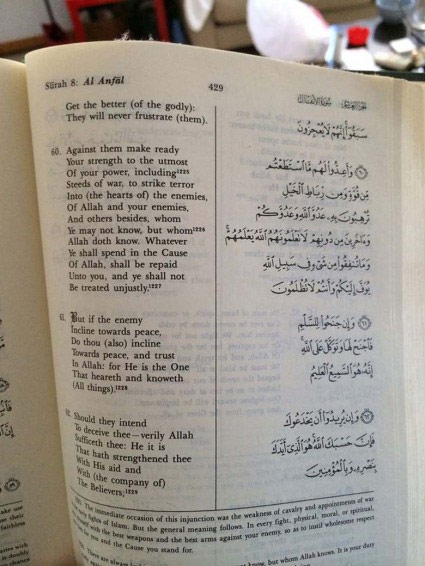 Sūrah 8: Al Anfāl
429
سُورَةُ الْأَنْفَالِ
Get the better (of the godly):
They will never frustrate (them).
60. Against them make ready
Your strength to the utmost
Of your power, including1225
Steeds of war, to strike terror
Into (the hearts of) the enemies,
Of Allah and your enemies,
And others besides, whom
Ye may not know, but whom1226
Allah doth know. Whatever
Ye shall spend in the Cause
Of Allah, shall be repaid
Unto you, and ye shall not
Be treated unjustly.1227
61. But if the enemy
Incline towards peace,
Do thou (also) incline
Towards peace, and trust
In Allah: for He is the One
That heareth and knoweth
(All things).1228
62. Should they intend
To deceive thee—verily Allah
Sufficeth thee: He it is
That hath strengthened thee
With His aid and
With (the company of)
The Believers;1229
سَبَقُوٓا۟ إِنَّهُمْ لَا يُعْجِزُونَ
٦٠ وَأَعِدُّوا۟ لَهُم مَّا ٱسْتَطَعْتُم
مِّن قُوَّةٍ وَمِن رِّبَاطِ ٱلْخَيْلِ
تُرْهِبُونَ بِهِۦ عَدُوَّ ٱللَّهِ وَعَدُوَّكُمْ
وَءَاخَرِينَ مِن دُونِهِمْ لَا تَعْلَمُونَهُمُ ٱللَّهُ يَعْلَمُهُمْ
وَمَا تُنفِقُوا۟ مِن شَىْءٍ فِى سَبِيلِ ٱللَّهِ
يُوَفَّ إِلَيْكُمْ وَأَنتُمْ لَا تُظْلَمُونَ
٦١ وَإِن جَنَحُوا۟ لِلسَّلْمِ
فَٱجْنَحْ لَهَا وَتَوَكَّلْ عَلَى ٱللَّهِ
إِنَّهُۥ هُوَ ٱلسَّمِيعُ ٱلْعَلِيمُ
٦٢ وَإِن يُرِيدُوٓا۟ أَن يَخْدَعُوكَ
فَإِنَّ حَسْبَكَ ٱللَّهُ هُوَ ٱلَّذِىٓ أَيَّدَكَ
بِنَصْرِهِۦ وَبِٱلْمُؤْمِنِينَ
The immediate occasion of this injunction was the weakness of cavalry and appointments of war
fights of Islam. But the general meaning follows. In every fight, physical, moral, or spiritual,
with the best weapons and the best arms against your enemy, so as to instil wholesome respect
you and the Cause you stand for.
There are always know, but whom Allah knows. It is your duty